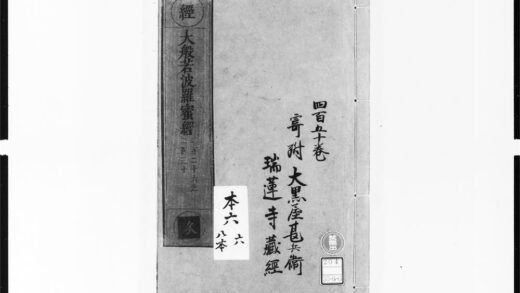 經
大般若波羅蜜經
四百五十卷
寄附大黒屋甚兵衛
瑞蓮寺藏經
本六
六
八本